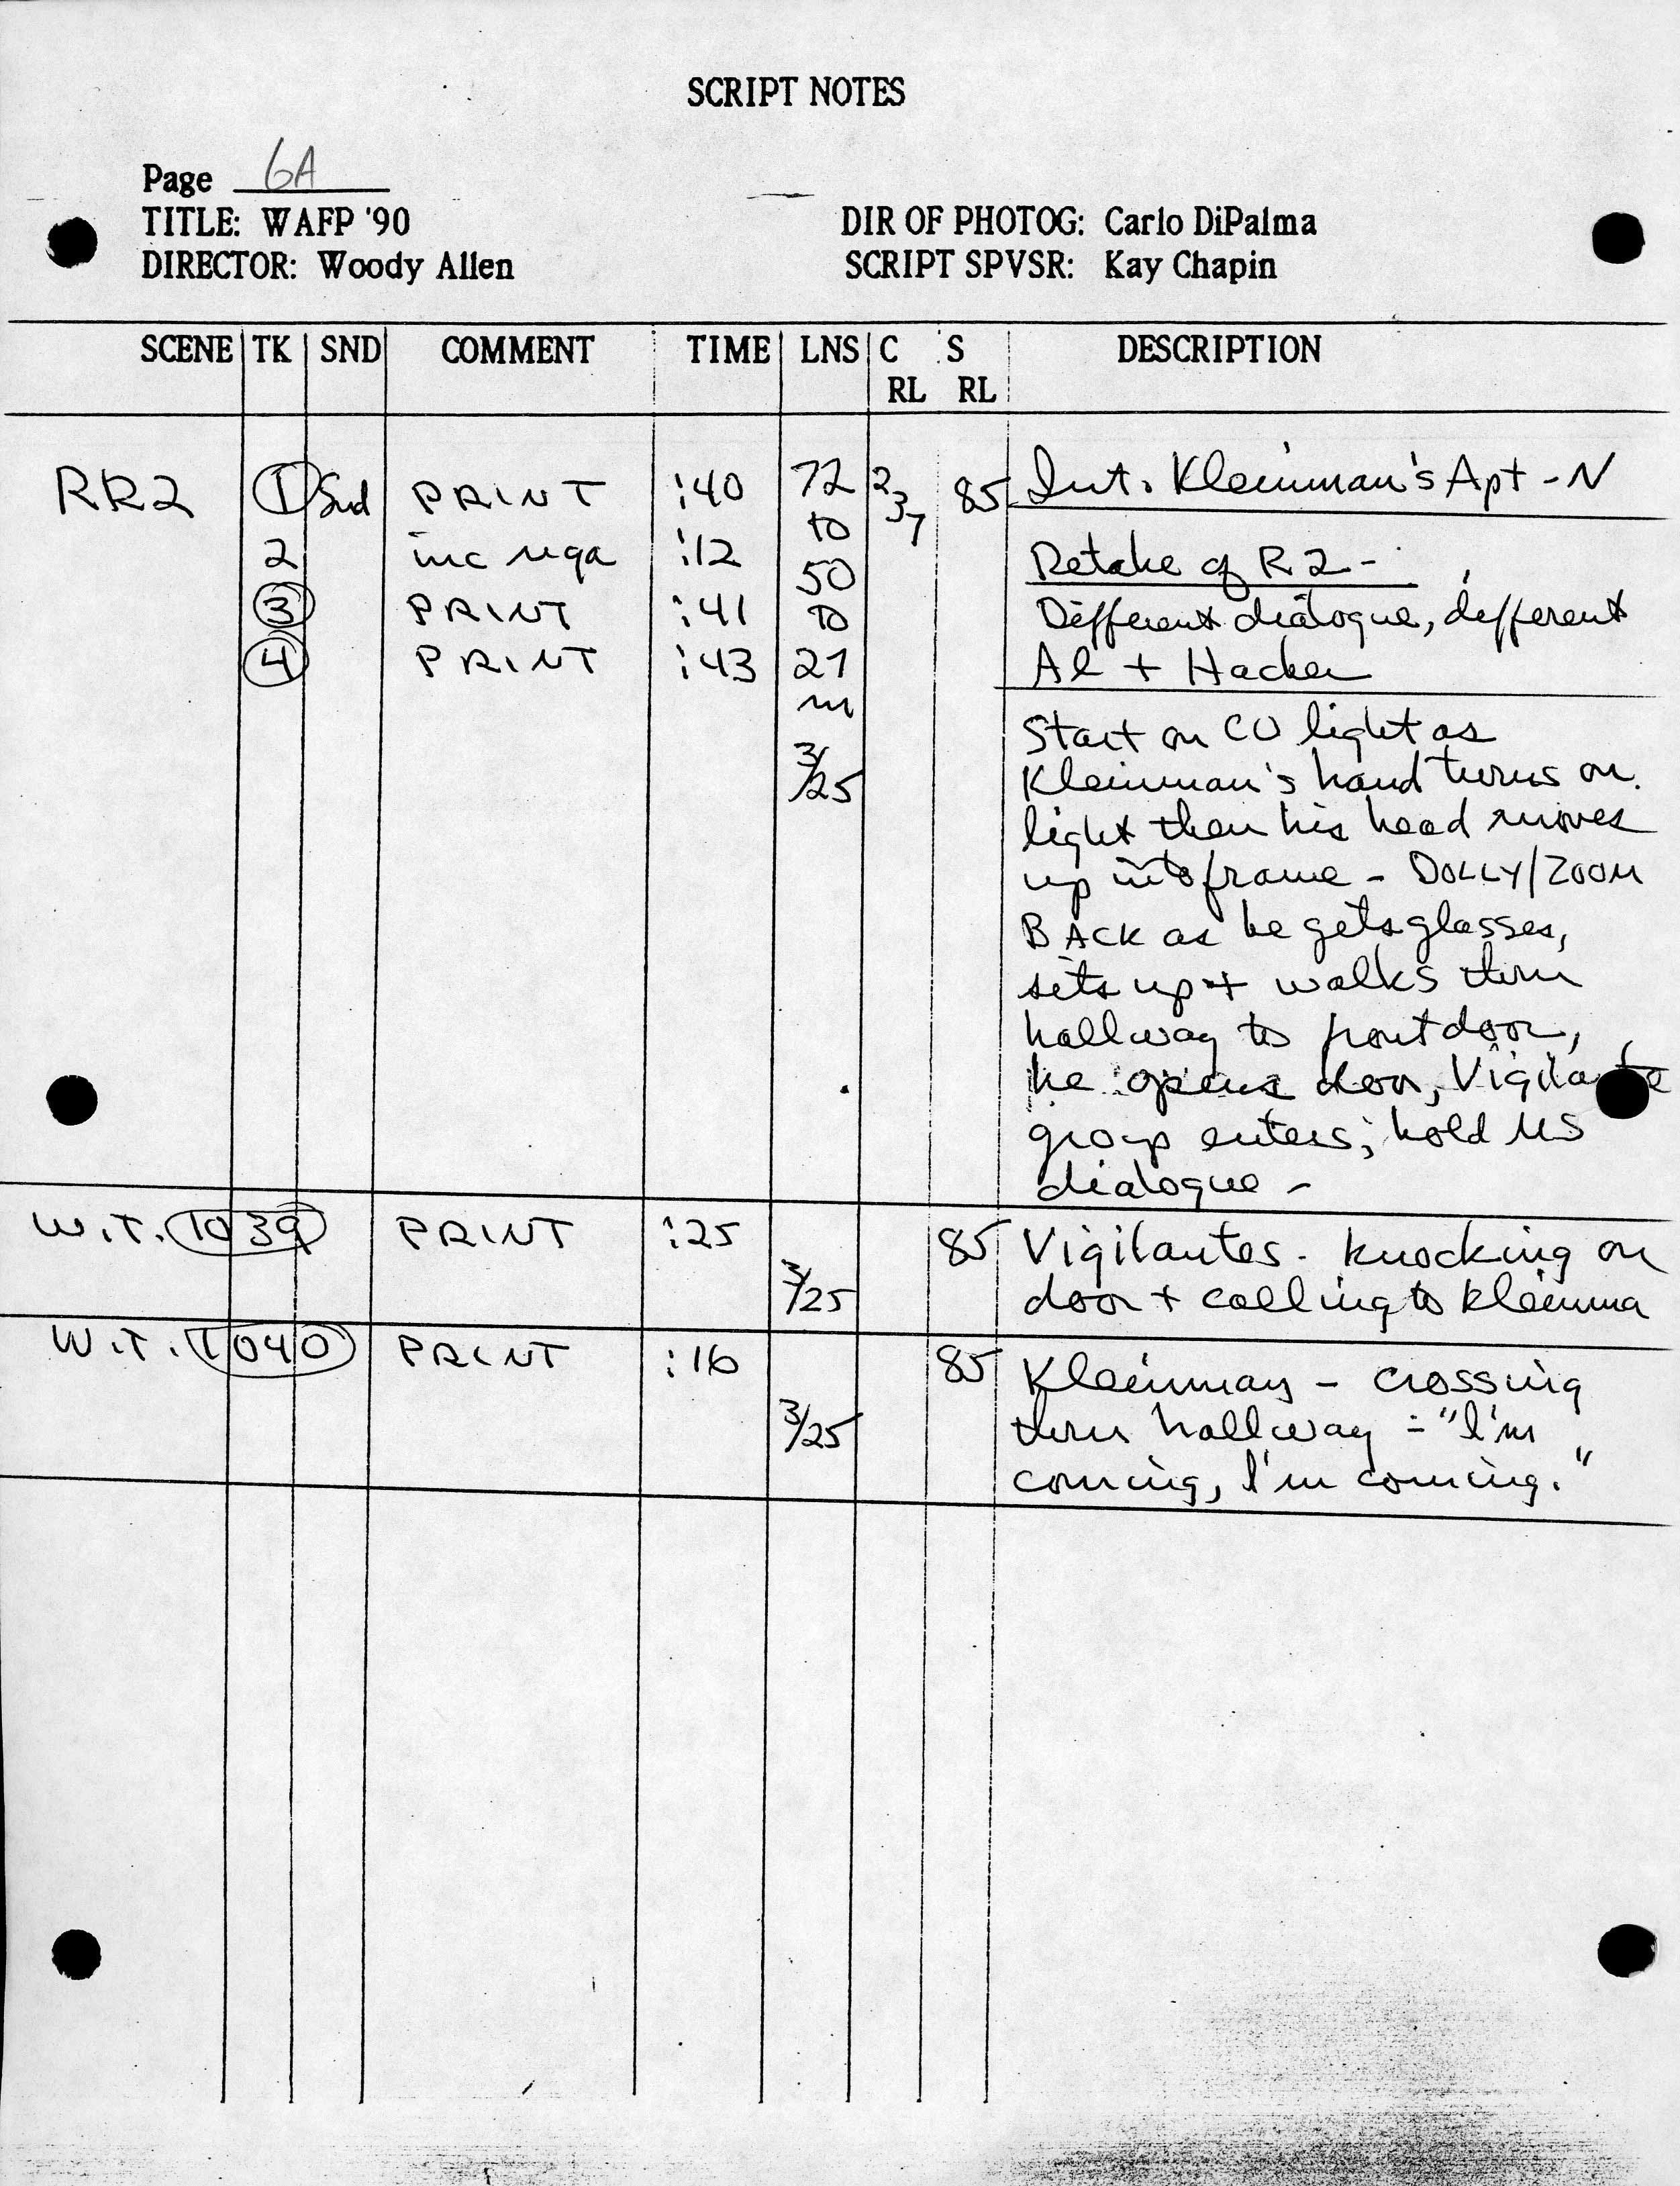 SCRIPT NOTES
Page 6A
TITLE: WAFP '90
DIR OF PHOTOG: Carlo DiPalma
DIRECTOR: Woody Allen
SCRIPT SPVSR: Kay Chapin
SCENE TK SND COMMENT TIME LNS C RL S RL DESCRIPTION
RR2 1 Snd PRINT :40 72 237 85 Int. Kleinman's Apt - N
to
2 inc nga :12 50 Retake of R2 -
3 PRINT :41 to Different dialogue, different
4 PRINT :43 27 Al + Hacker
m
3/25
Start on CU light as
Kleinman's hand turns on
light then his head moves
up into frame - DOLLY/ZOOM
BACK as he gets glasses,
sits up + walks thru
hallway to front door,
he opens door, Vigilante
group enters; hold MS
dialogue -
W.T. 1039 PRINT :25 85 Vigilantes - knocking on
3/25 door + calling to Kleinma
W.T. 1040 PRINT :16 85 Kleinman - crossing
3/25 thru hallway - "I'm
coming, I'm coming."